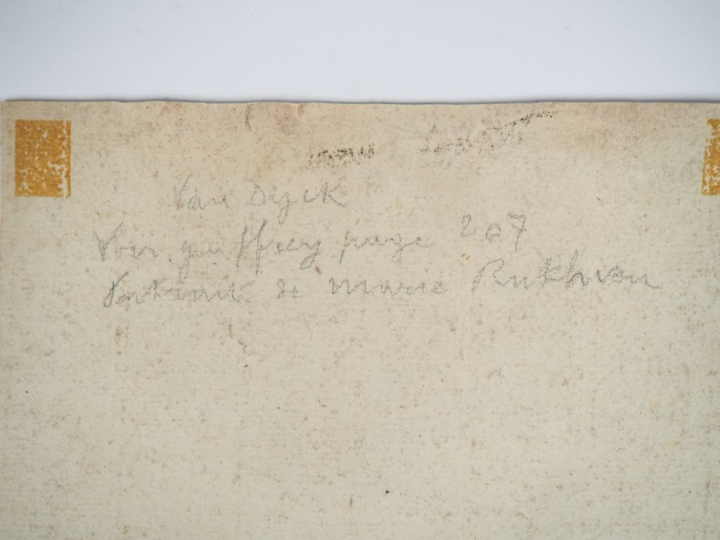 Van Dyck
Voir gueffrey page 207
Portrait de Marie Ruthven